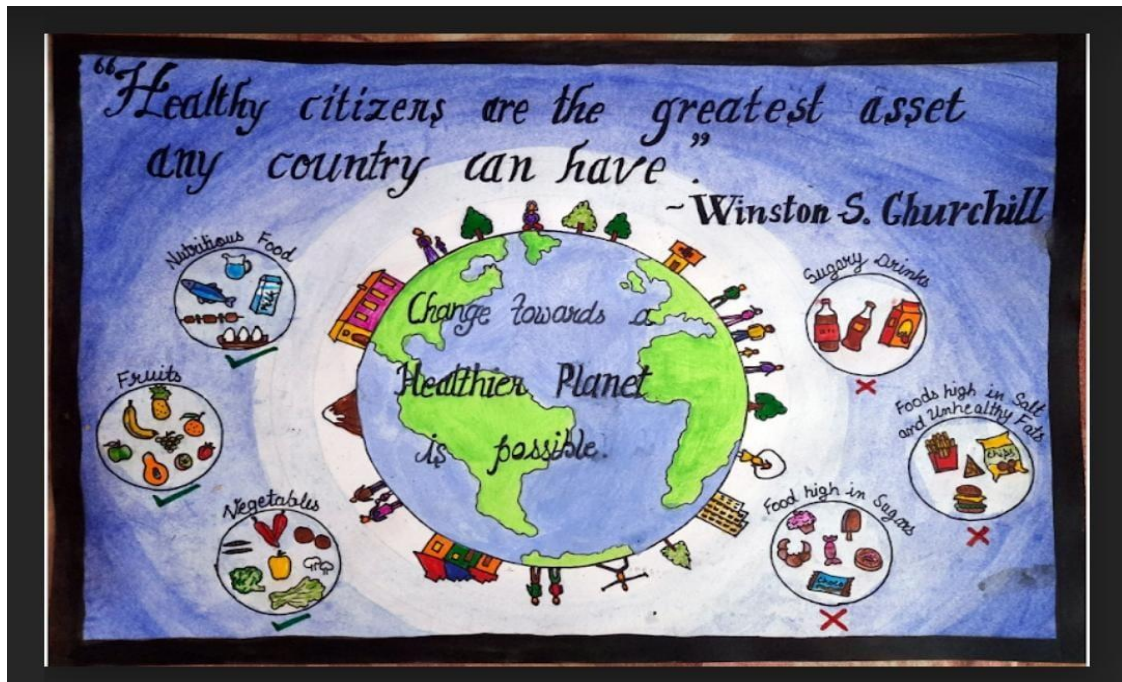 “Healthy citizens are the greatest asset
any country can have”.
~Winston S. Churchill
Nutritious Food
Milk
Fruits
Vegetables
Change towards a
Healthier Planet
is possible.
Sugary Drinks
Foods high in Salt
and Unhealthy Fats
Chips
Food high in Sugars
Choco